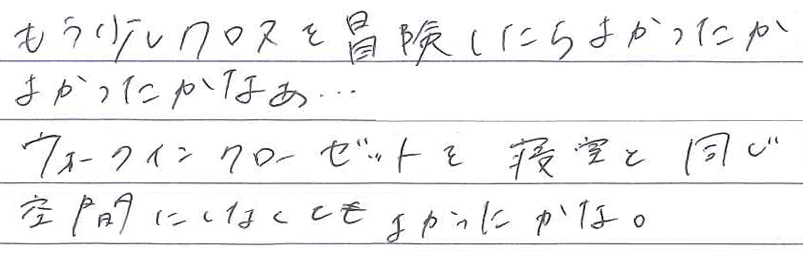 もう少しクロスを冒険したらよかったか
よかったかなぁ…
ウォークインクローゼットを寝室と同じ
空間にしなくてもよかったかな。